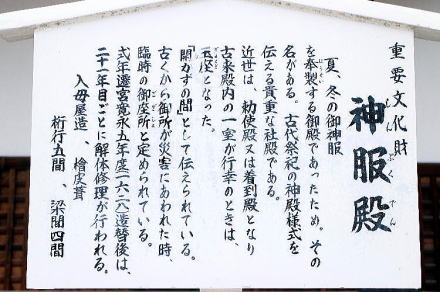 重要文化財
神服殿
しんぷくでん
夏、冬の御神服
を奉製する御殿であったため、その
名がある。古代祭祀の神殿様式を
伝える貴重な社殿である。
近世は、勅使殿又は着到殿となり
古来殿内の一室が行幸のときは
玉座となった。
「開かずの間」として伝えられている。
古くから御所が災害にあわれた時、
臨時の御座所と定められている。
式年遷宮寛永五年度(一六二八)造替後は、
二十一年目ごとに解体修理が行われる。
入母屋造、檜皮葺
桁行五間、梁間四間